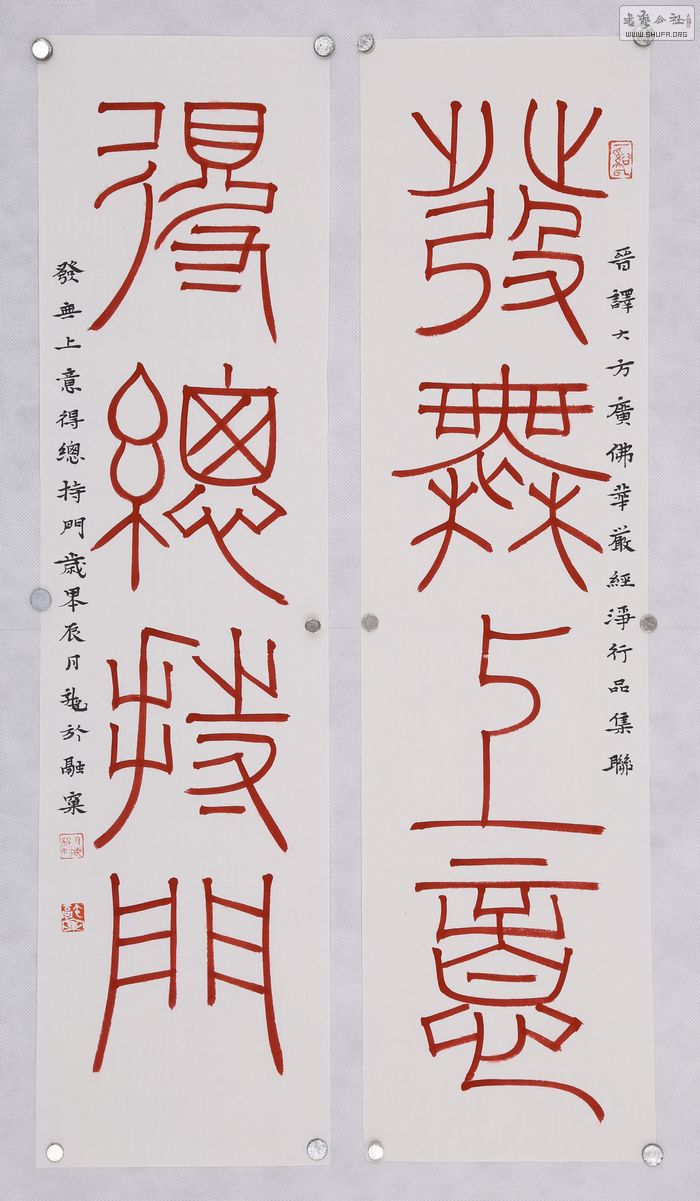 發無上意
晉譯大方廣佛華嚴經淨行品集聯
得總持門
發無上意得總持門歲畢辰月
於融窠
書法公社
WWW.SHUFA.ORG